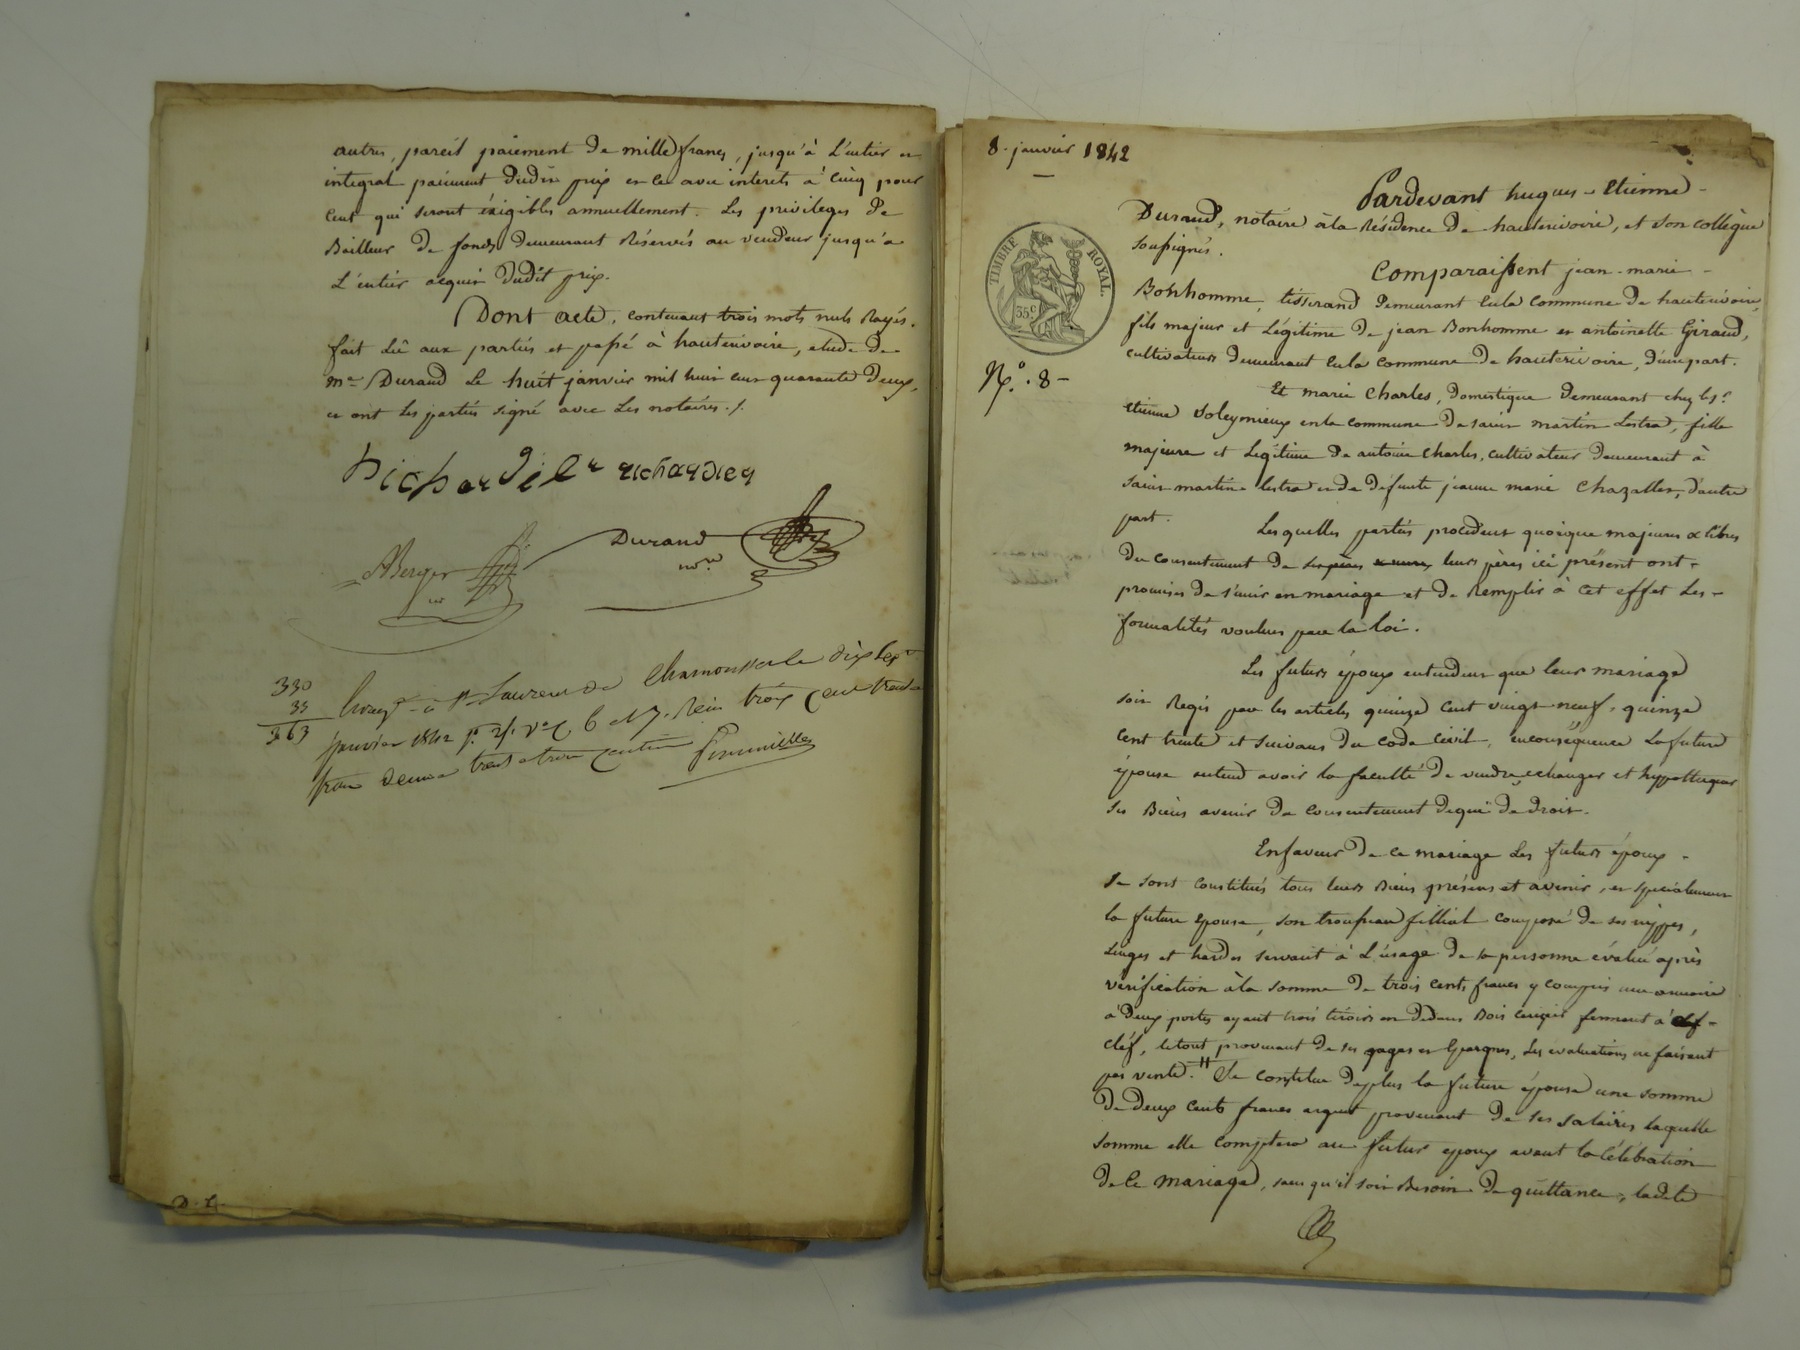 autres, pareil paiement de mille francs, jusqu'à L'entier et
integral paiement dudit prix et ce avec interets à cinq pour
cent qui seront éxigibles annuellement. Les privileges de
Bailleur de fonds demeurant Réservés au vendeur jusqu'a
L'entier acquit dudit prix.
Dont acte, contenant trois mots nuls Rayés.
fait Lû aux parties et passé à hauterivoire, etude de
me Durand Le huit janvier mil huit cent quarante deux,
et ont Les parties signé avec Les notaires ./.
richardier
Durand
nre
ABerger
330
33
363
Enregé à St Laurent de Chamousset le dix sept
janvier 1842 fo 21 Vo C 6 et 7. Reçu trois cent trente
francs decime trente trois francs
D. L.
8. janvier 1842
Pardevant hugues-Etienne
Durand, notaire à la Résidence de hauterivoire, et son collègue
soussignés.
TIMBRE ROYAL.
35 c
Comparaissent jean-marie
Bonhomme, tisserand demeurant en la commune de hauterivoire,
fils majeur et Légitime de jean Bonhomme et antoinette Giraud,
cultivateurs demeurant en la commune de hauterivoire, d'une part.
No. 8
Et marie Charles, domestique demeurant chez le sr
Etienne Voleymieux en la commune de saint martin Lestra, fille
majeure et Legitime de antoine Charles, cultivateur demeurant à
saint martin lestra et de défunte jeanne marie Chazalles, d'autre
part.
Lesquelles parties procédant quoique majeures & libres
du consentement de leurs pères ici présent ont
promises de s'unir en mariage et de Remplir à cet effet Les
formalités voulues par la loi.
Les futurs époux entendent que leur mariage
soit Regis par les articles quinze cent vingt neuf, quinze
cent trente et suivans du code civil, en conséquence La future
épouse entend avoir la faculté de vendre, echanger et hypothequer
ses Biens avenir du consentement de qui de droit.
En faveur de ce mariage Les futurs époux
se sont constitués tous leurs Biens présens et avenir, et spécialement
la future epouse, son trousseau fillial composé de ses nippes,
Linges et hardes servant à L'usage de sa personne évalué après
vérification à la somme de trois cents francs y compris une armoire
à deux portes ayant trois tiroirs en dedans Bois cerisier fermant à clef
cléf, le tout provenant de ses gages et Epargnes, Les evaluations ne faisant
pas vente. Se constitue deplus la future épouse une somme
de deux cents francs argent provenant de ses salaires laquelle
somme elle comptera au futur epoux avant la Célébration
de ce mariage, sans qu'il soit Besoin de quittance, ladite